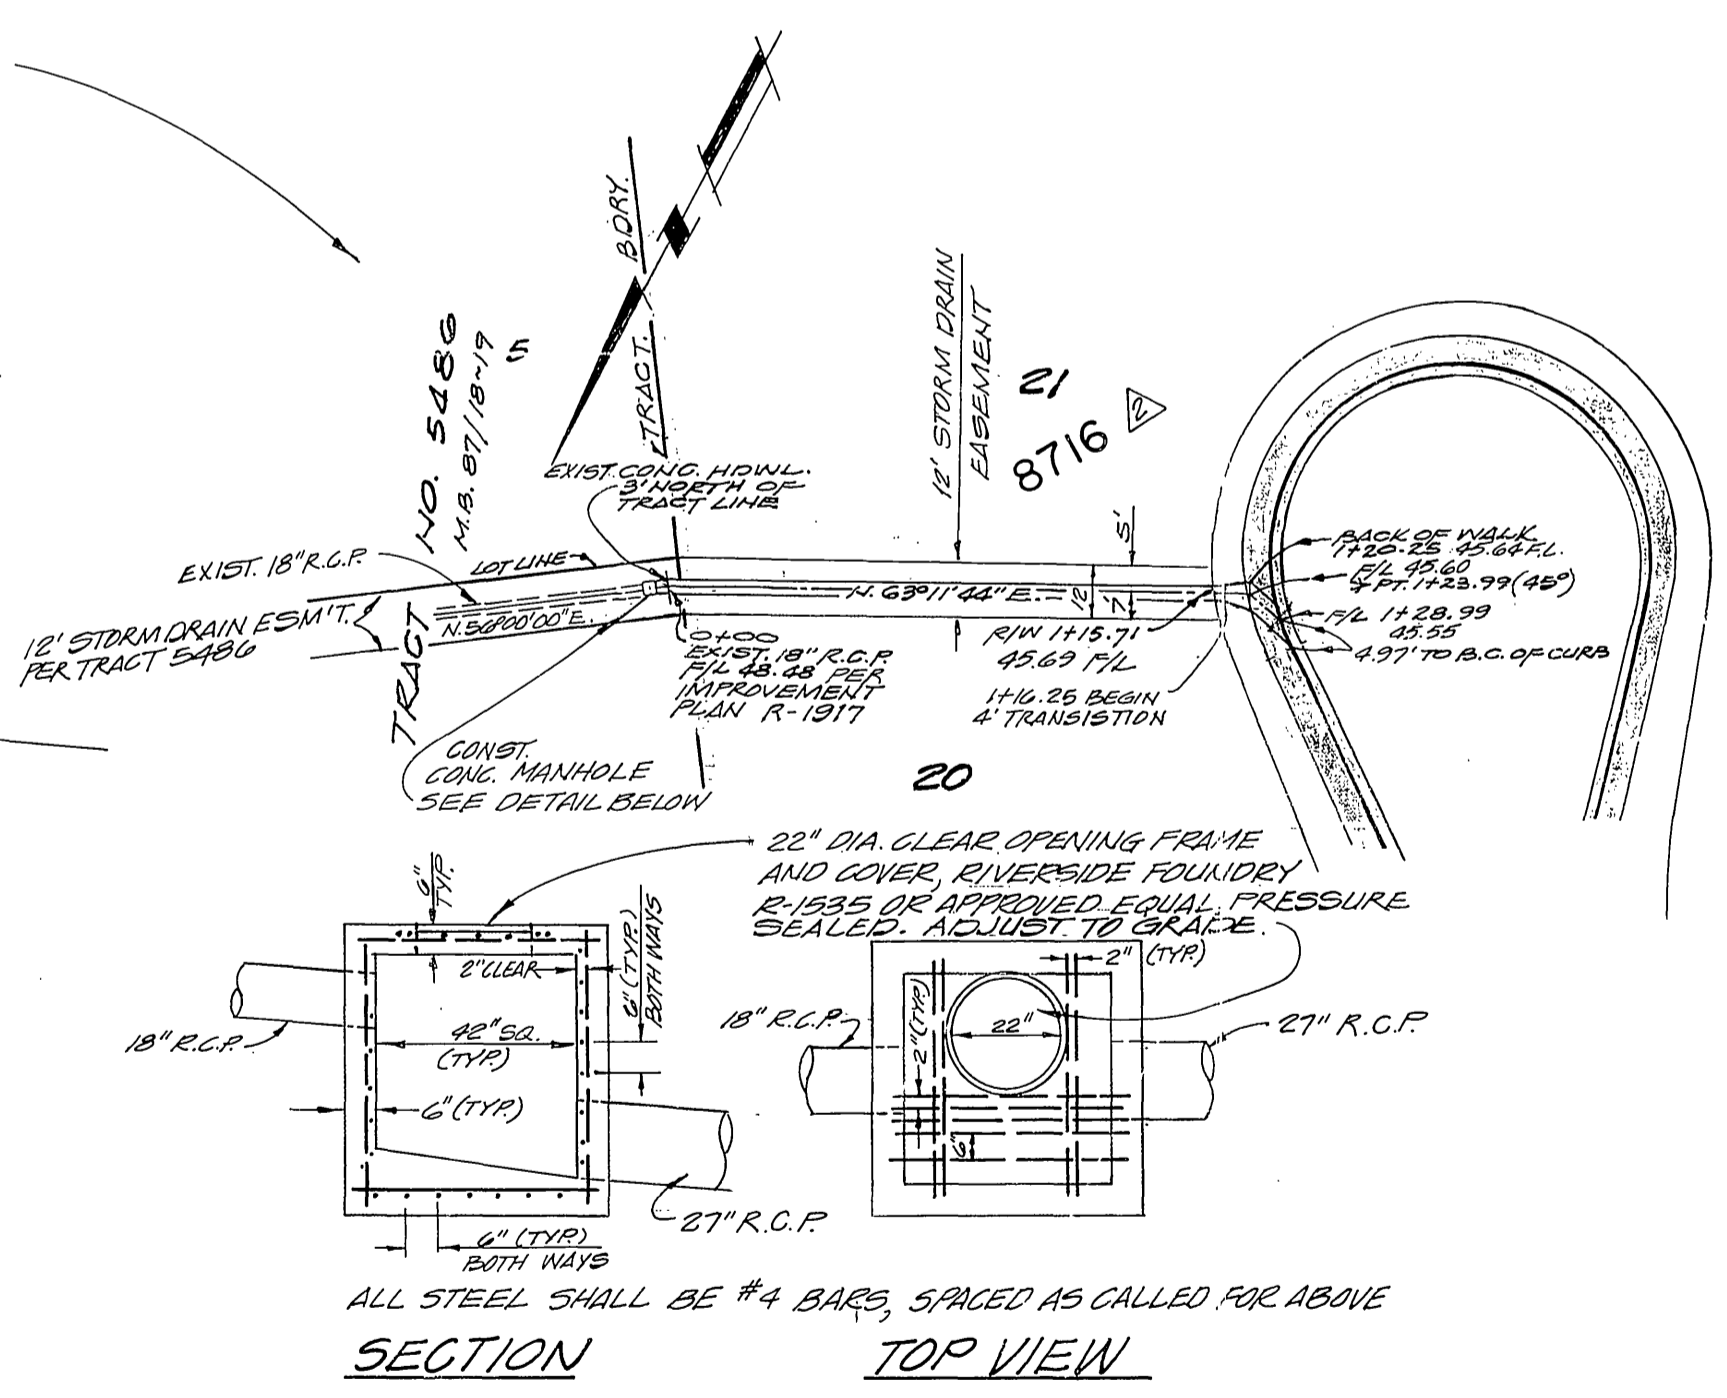 NO. 5486
M.B. 87/18~19
5
TRACT
TRACT. BDRY.
12' STORM DRAIN
EASEMENT
21
8716
2
EXIST. CONC. HDWL.
3' NORTH OF
TRACT LINE
EXIST. 18" R.C.P.
LOT LINE
12' STORM DRAIN ESM'T.
PER TRACT 5486
N. 56°00'00" E.
N. 63°11'44" E.
5'
12'
7'
0+00
EXIST. 18" R.C.P.
F/L 48.48 PER
IMPROVEMENT
PLAN R-1917
R/W 1+15.71
45.69 F/L
1+16.25 BEGIN
4' TRANSISTION
BACK OF WALK
1+20.25 45.64 F.L.
F/L 45.60
∡ PT. 1+23.99 (45°)
F/L 1+28.99
45.55
4.97' TO B.C. OF CURB
CONST.
CONC. MANHOLE
SEE DETAIL BELOW
20
22" DIA. CLEAR OPENING FRAME
AND COVER, RIVERSIDE FOUNDRY
R-1535 OR APPROVED EQUAL, PRESSURE
SEALED. ADJUST TO GRADE.
6"
TYP.
2" CLEAR
6" (TYP.)
BOTH WAYS
18" R.C.P.
42" SQ.
(TYP.)
6" (TYP.)
27" R.C.P.
6" (TYP.)
BOTH WAYS
2" (TYP.)
18" R.C.P.
2" (TYP.)
22"
27" R.C.P.
6"
ALL STEEL SHALL BE #4 BARS, SPACED AS CALLED FOR ABOVE
SECTION
TOP VIEW